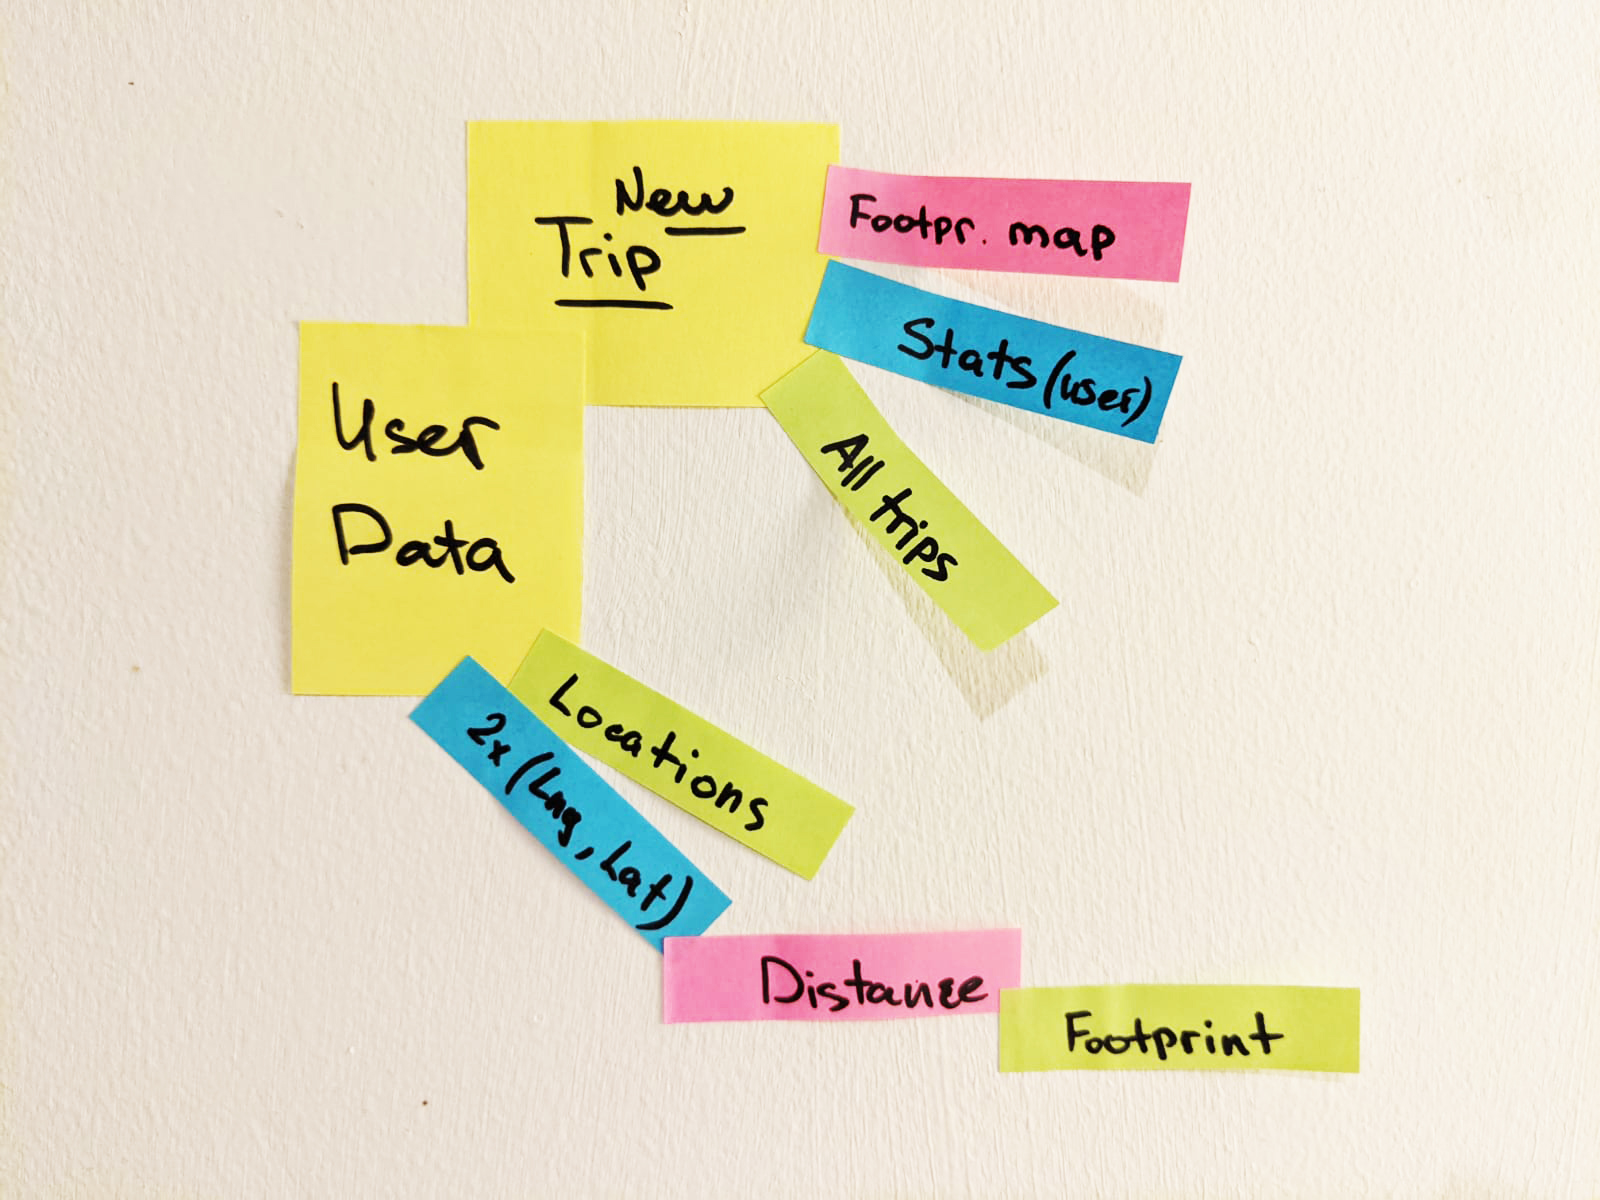 New
Trip
Footpr. map
Stats (user)
All trips
User
Data
Locations
2x (Lng, Lat)
Distance
Footprint